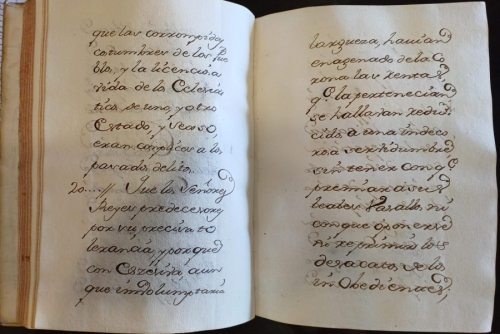 que las corrompidas
costumbres de los Pue
blos, y la licenciosa
vida de los Eclesias
ticos de uno, y otro
Estado, y sexo
eran complices a los
pasados delitos.
20.....// Que los Señores
Reyes predecesores
por su precisa to
lerancia, y porque
con Estefina aun
que imboluntaria
largueza, havian
enagenado de la Co
rona las rentas,
qe. la pertenecian
se hallavan redu
cidos a una indeco
rosa servidumbre
sin tener con qe.
premiar a sus
leales Vasallos, ni
con que oponerse
ni reprimir los
desacatos de los
in Obedientes;